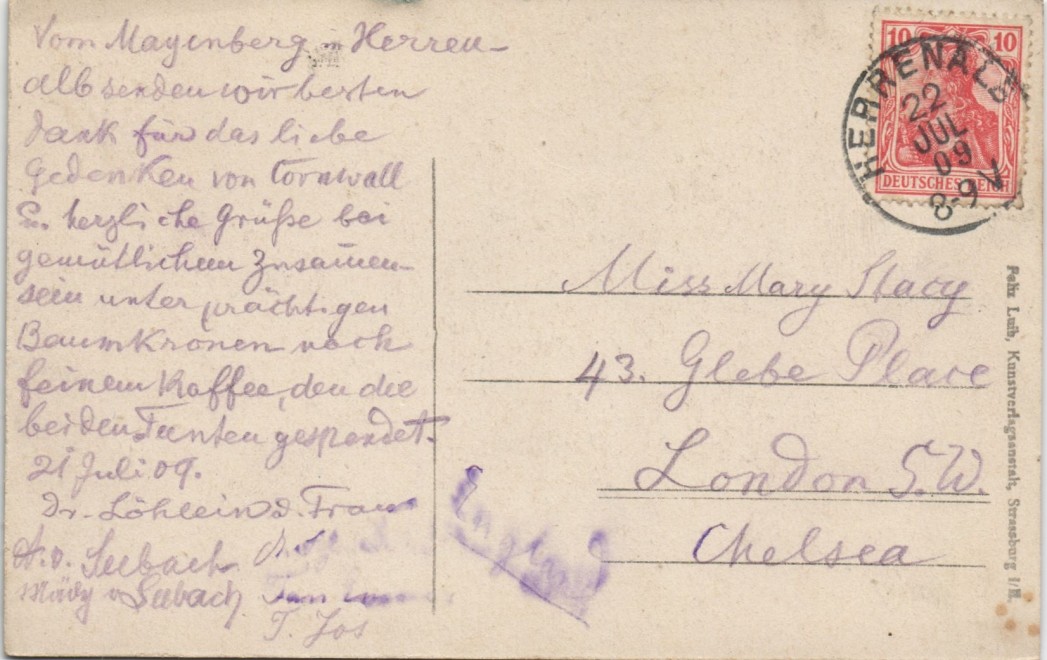 Vom Mayenberg in Herren-
alb senden wir besten
Dank für das liebe
Gedenken von Cornwall
Su. herzliche Grüße bei
gemütlichem Zusamen-
sein unter prächtigen
Baumkronen nach
feinem Kaffee, den die
beiden Tanten gespendet.
21 Juli 09.
Dr. Löhlein d. Frau
A. v. Seebach
Mädy v Seebach
T. Jos
10 10
DEUTSCHES REICH
HERRENALB
22
JUL
09
8-9 V
Miss Mary Stacy
43. Glebe Place
London S.W.
Chelsea
England
Felix Luib, Kunstverlagsanstalt, Strassburg i/E.